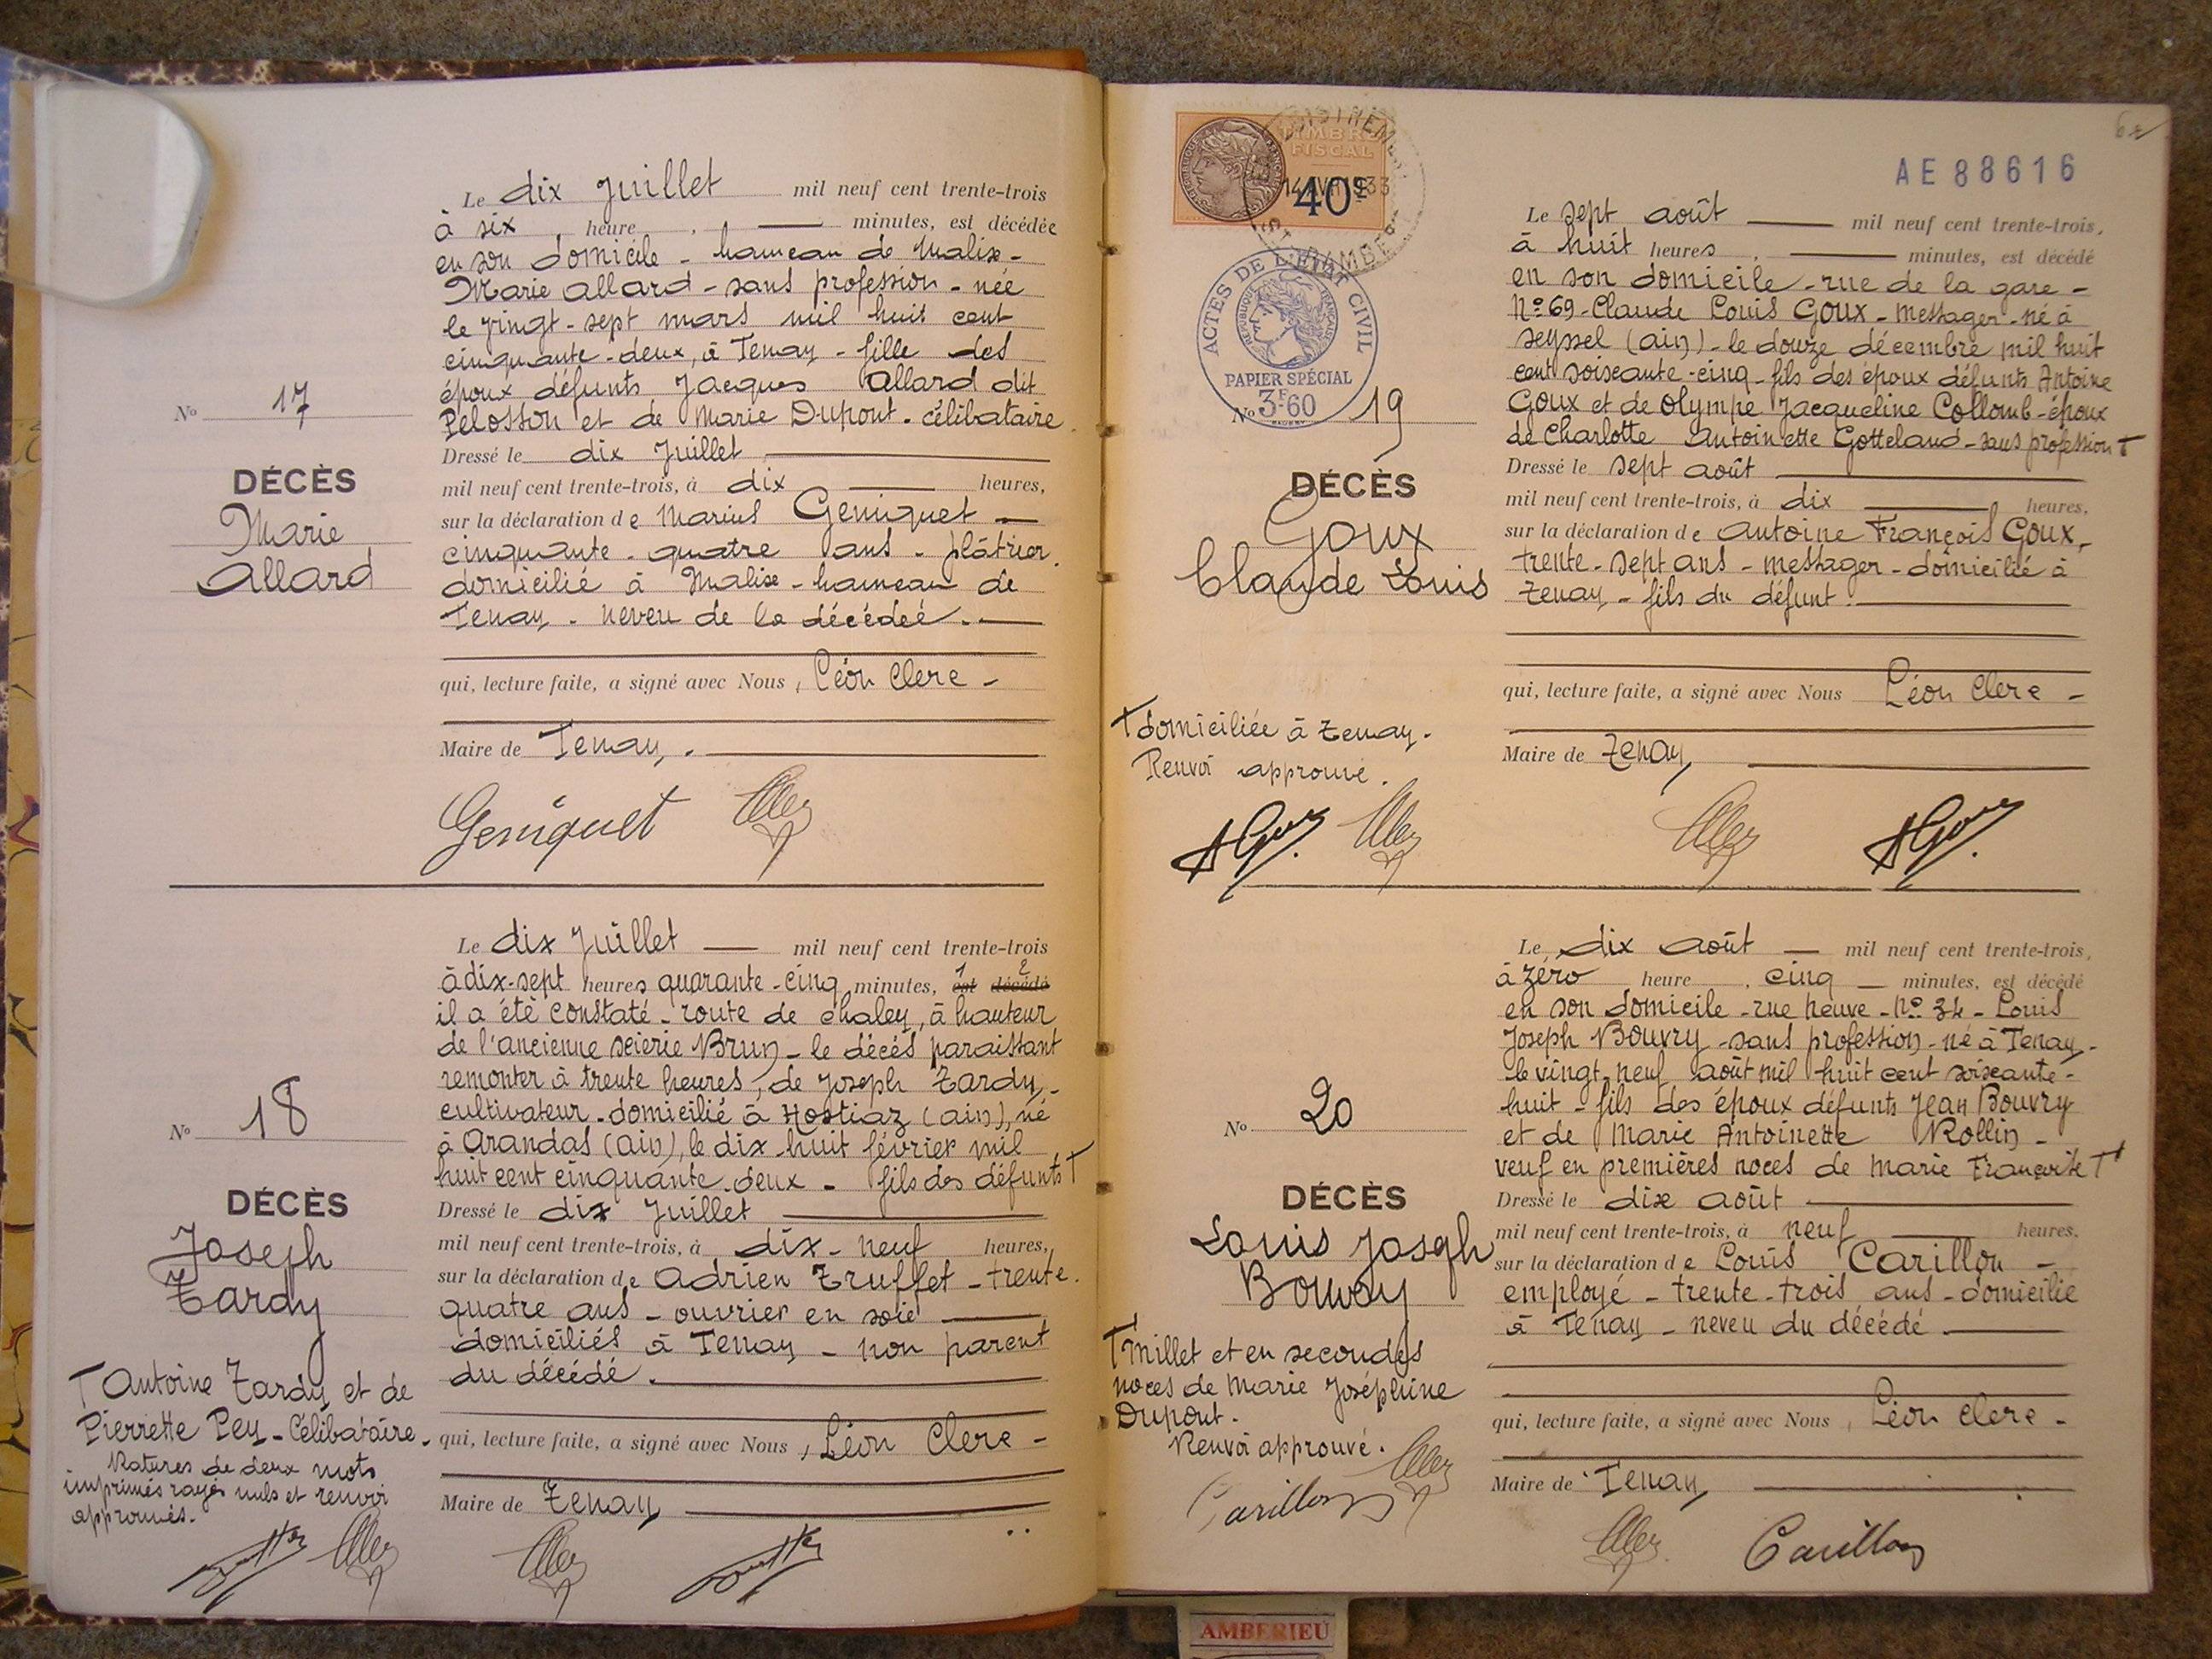 Le dix Juillet mil neuf cent trente-trois
à six heure minutes, est décédée
en son domicile - hameau de Malix -
Marie Allard - sans profession - née
le vingt-sept mars mil huit cent
cinquante-deux, à Tenay - fille des
époux défunts Jacques Allard dit
Pelosson et de Marie Dupont. célibataire.
Dressé le dix Juillet
mil neuf cent trente-trois, à dix heures,
sur la déclaration de Marius Geniquet
cinquante-quatre ans - plâtrier.
domicilié à Malix - hameau de
Tenay - neveu de la décédée.
qui, lecture faite, a signé avec Nous, Léon Clerc -
Maire de Tenay.
Geniquet
No 17
DÉCÈS
Marie
Allard
Le dix Juillet mil neuf cent trente-trois
à dix-sept heures quarante-cinq minutes, 1 est 2 décédé
il a été constaté - route de chaley, à hauteur
de l'ancienne scierie Brun - le décès paraissant
remonter à trente heures, de Joseph Tardy -
cultivateur - domicilié à Hostiaz (ain), né
à Arandas (ain), le dix-huit février mil
huit cent cinquante-deux - fils des défunts T
Dressé le dix Juillet
mil neuf cent trente-trois, à dix-neuf heures,
sur la déclaration de Adrien Truffet - trente-
quatre ans - ouvrier en soie
domiciliés à Tenay - non parent
du décédé.
qui, lecture faite, a signé avec Nous, Léon Clerc -
Maire de Tenay
No 18
DÉCÈS
Joseph
Tardy
T Antoine Tardy et de
Pierrette Pey - Célibataire.
Ratures de deux mots
imprimés rayés nuls et renvoi
approuvés.
TIMBRE
FISCAL
40c
AE 88616
ACTES DE L'ÉTAT CIVIL
RÉPUBLIQUE FRANÇAISE
PAPIER SPÉCIAL
3F60
Le sept août mil neuf cent trente-trois,
à huit heures minutes, est décédé
en son domicile - rue de la gare -
No 69 - Claude Louis Goux - messager - né à
seyssel (ain) - le douze décembre mil huit
cent soixante-cinq - fils des époux défunts Antoine
Goux et de Olympe Jacqueline Collomb - époux
de Charlotte Antoinette Gotteland - sans profession T
Dressé le sept août
mil neuf cent trente-trois, à dix heures,
sur la déclaration de Antoine François Goux -
trente-sept ans - messager - domicilié à
Tenay - fils du défunt.
qui, lecture faite, a signé avec Nous Léon Clerc -
Maire de Tenay
No 19
DÉCÈS
Goux
Claude Louis
T domiciliée à Tenay.
Renvoi approuvé.
AGoux
AGoux
Le dix août mil neuf cent trente-trois,
à zéro heure, cinq minutes, est décédé
en son domicile - rue neuve - No 34 - Louis
Joseph Bouvry - sans profession - né à Tenay -
le vingt-neuf août mil huit cent soixante-
huit - fils des époux défunts Jean Bouvry
et de Marie Antoinette Rollin -
veuf en premières noces de Marie Françoise T
Dressé le dix août
mil neuf cent trente-trois, à neuf heures,
sur la déclaration de Louis Carillon -
employé - trente-trois ans - domicilié
à Tenay - neveu du décédé
qui, lecture faite, a signé avec Nous, Léon Clerc -
Maire de Tenay
Carillon
No 20
DÉCÈS
Louis Joseph
Bouvry
T Millet et en secondes
noces de Marie Joséphine
Dupont.
Renvoi approuvé.
Carillon
AMBERIEU